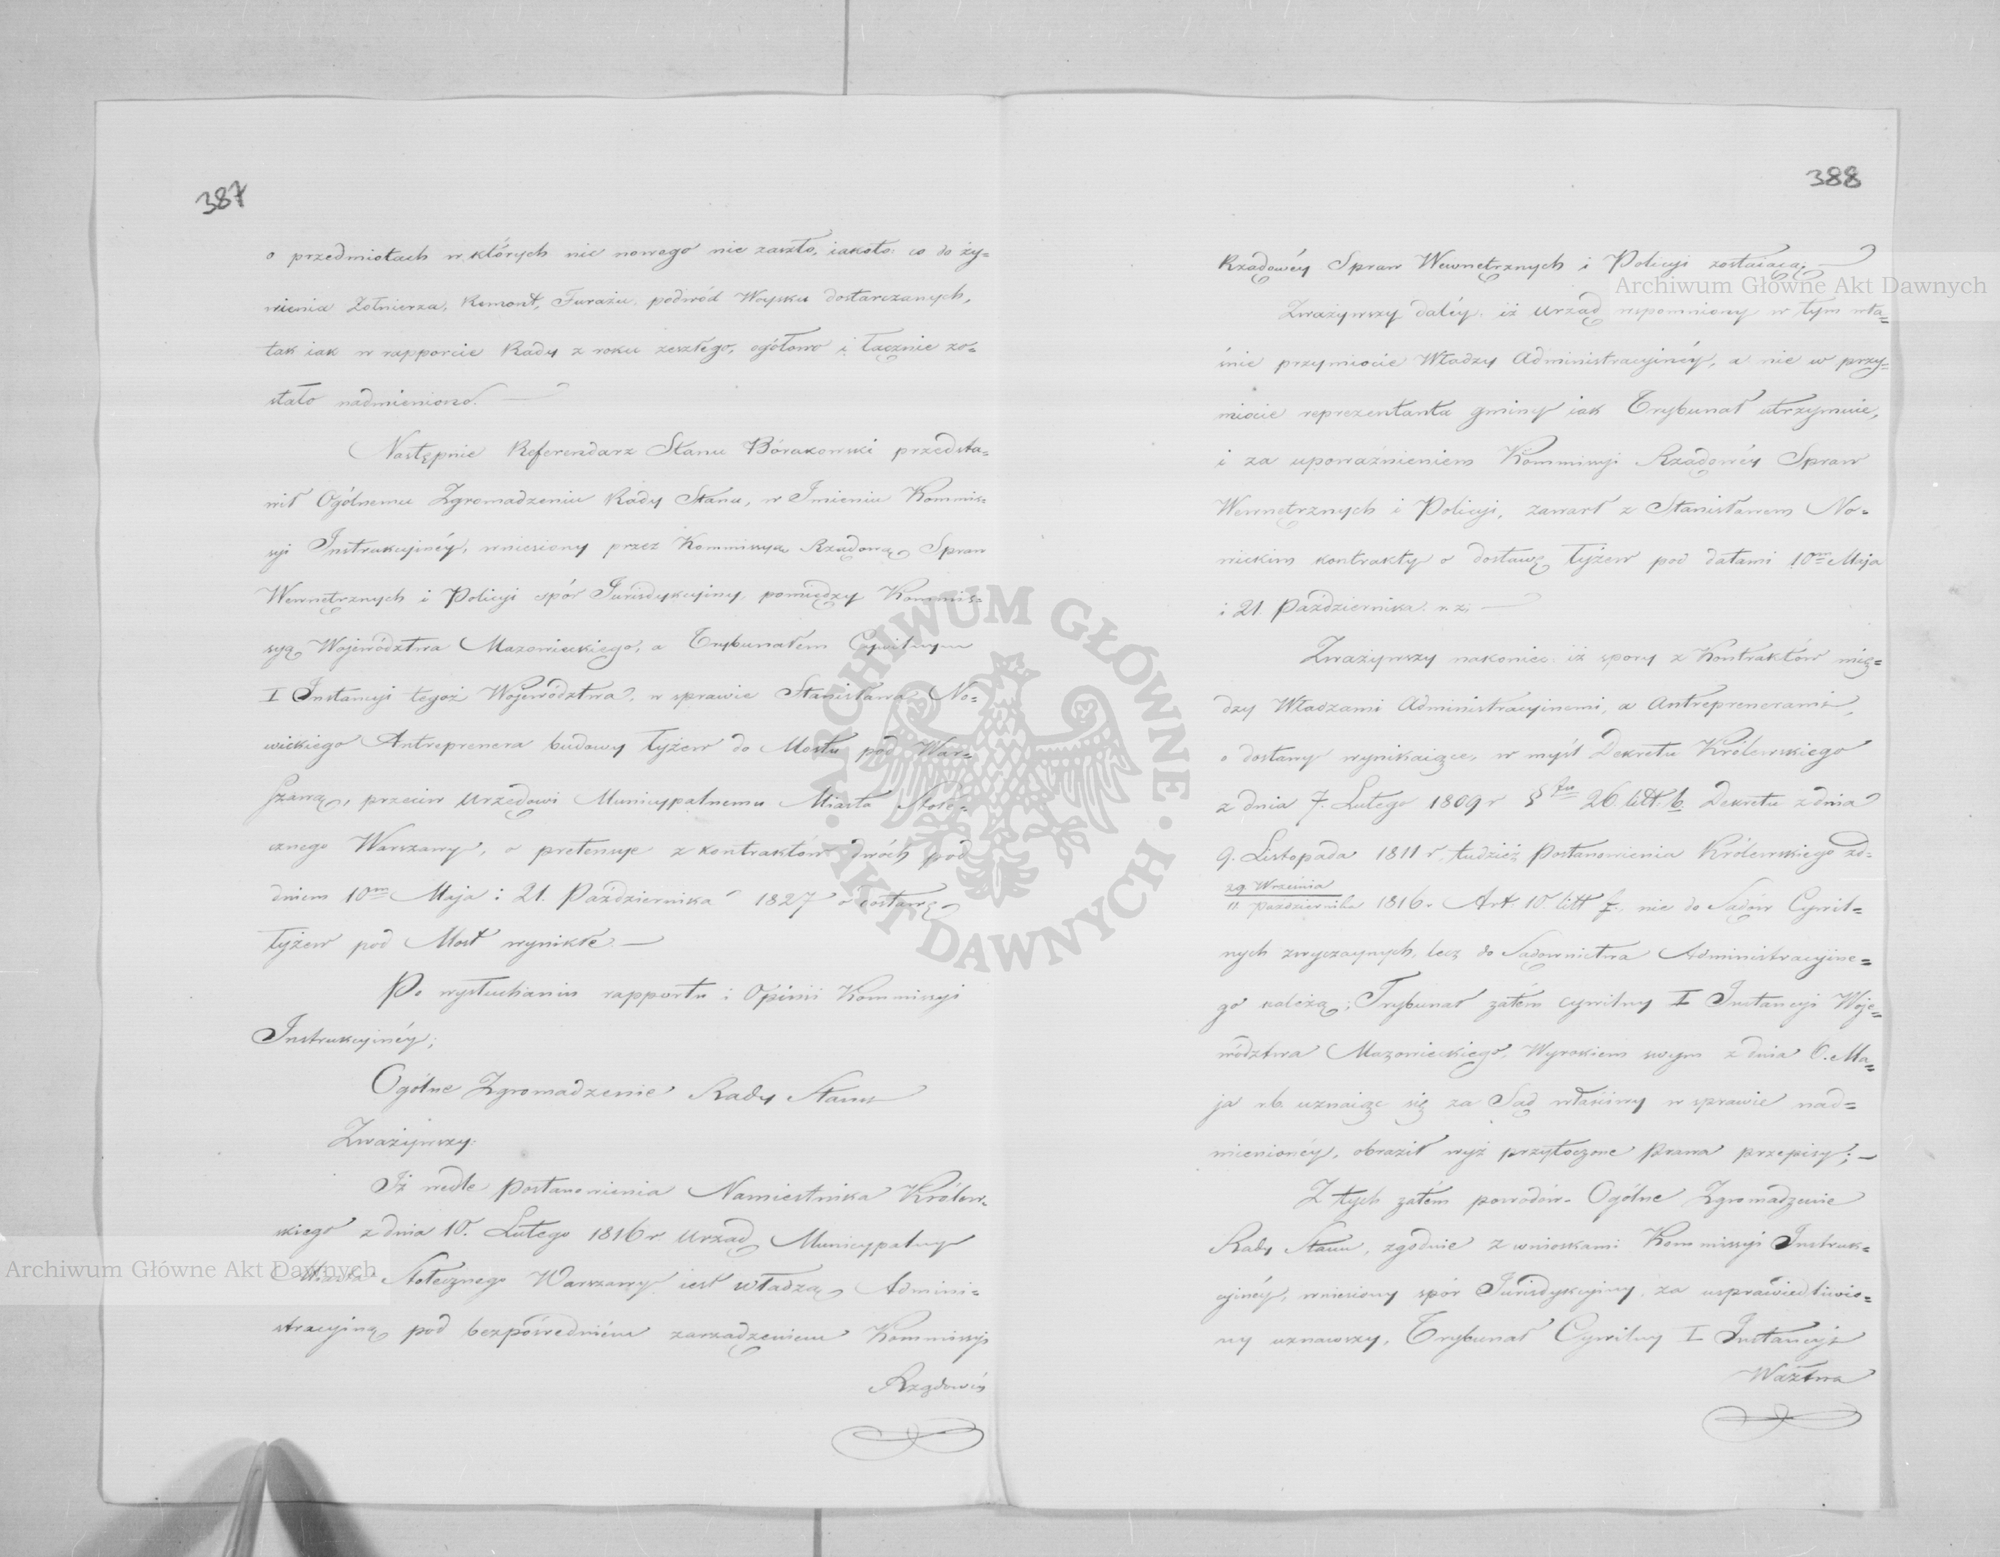 387
o przedmiotach w których nic nowego nie zaszło, iakoto: co do ży=
wienia Żołnierza, Remont, Furażu, podwód Woysku dostarczanych,
tak iak w rapporcie Rady z roku zeszłego, ogółowo i łącznie zo=
stało nadmieniono. —
Następnie Referendarz Stanu Bórakowski przedsta=
wił Ogólnemu Zgromadzeniu Rady Stanu, w Imieniu Kommis=
syi Instrukcyinéy, wniesiony przez Kommissyą Rządową Spraw
Wewnętrznych i Policyi spór Jurisdykcyiny, pomiędzy Kommis=
syą Województwa Mazowieckiego, a Trybunałem Cywilnym
I Instancyi tegoż Województwa, w sprawie Stanisława No=
wickiego Antreprenera budowy łyżew do Mostu pod War=
szawą, przeciw Urzędowi Municypalnemu Miasta Stołe=
cznego Warszawy, o pretensye z kontraktów dwóch pod
dniem 10m Maja i 21. Października 1827 o dostawę
łyżew pod Most wynikłe. —
Po wysłuchaniu rapportu i Opinii Kommissyi
Instrukcyinéy;
Ogólne Zgromadzenie Rady Stanu
Zważywszy:
Iż wedle Postanowienia Namiestnika Królew=
skiego z dnia 10. Lutego 1816 r Urząd Municypalny
Miasta Stołecznego Warszawy iest władzą Admini=
stracyiną pod bezpośredniém zarządzeniem Kommissyi
Rządowéy
388
Rządowéy Spraw Wewnętrznych i Policyi zostaiącą; —
Zważywszy daléy, iż Urząd wspomniony w tym wła=
śnie przymiocie Władzy Administracyinéy, a nie w przy=
miocie reprezentanta gminy iak Trybunał utrzymuie,
i za upoważnieniem Kommissyi Rządowéy Spraw
Wewnętrznych i Policyi, zawarł z Stanisławem No=
wickim kontrakty o dostawę łyżew pod datami 10m Maja
i 21. Października r. z. —
Zważywszy nakoniec, iż spory z Kontraktów mię=
dzy Władzami Administracyinemi, a Antreprenerami
o dostawy wynikaiące, w myśl Dekretu Królewskiego
z dnia 7. Lutego 1809 r § fu 26 litt. b. Dekretu z dnia
9. Listopada 1811 r. tudzież Postanowienia Królewskiego zd=
29 Września
11 Października 1816. Art. 10 litt f., nie do Sądów Cywil=
nych zwyczaynych, lecz do Sądownictwa Administracyine=
go należą; Trybunał zatém cywilny I Instancyi Woje=
wództwa Mazowieckiego, Wyrokiem swym z dnia 6. Ma=
ja r.b. uznaiąc się za Sąd właściwy w sprawie nad=
mienionéy, obraził wyż przytoczone prawa przepisy; —
Z tych zatém powodów Ogólne Zgromadzenie
Rady Stanu, zgodnie z wnioskami Kommissyi Instruk=
cyinéy, wniesiony spór Jurisdykcyiny, za usprawiedliwio=
ny uznawszy, Trybunał Cywilny I Instancyi
Wdztwa
Archiwum Główne Akt Dawnych
Archiwum Główne Akt Dawnych
ARCHIWUM GŁÓWNE · AKT DAWNYCH ·